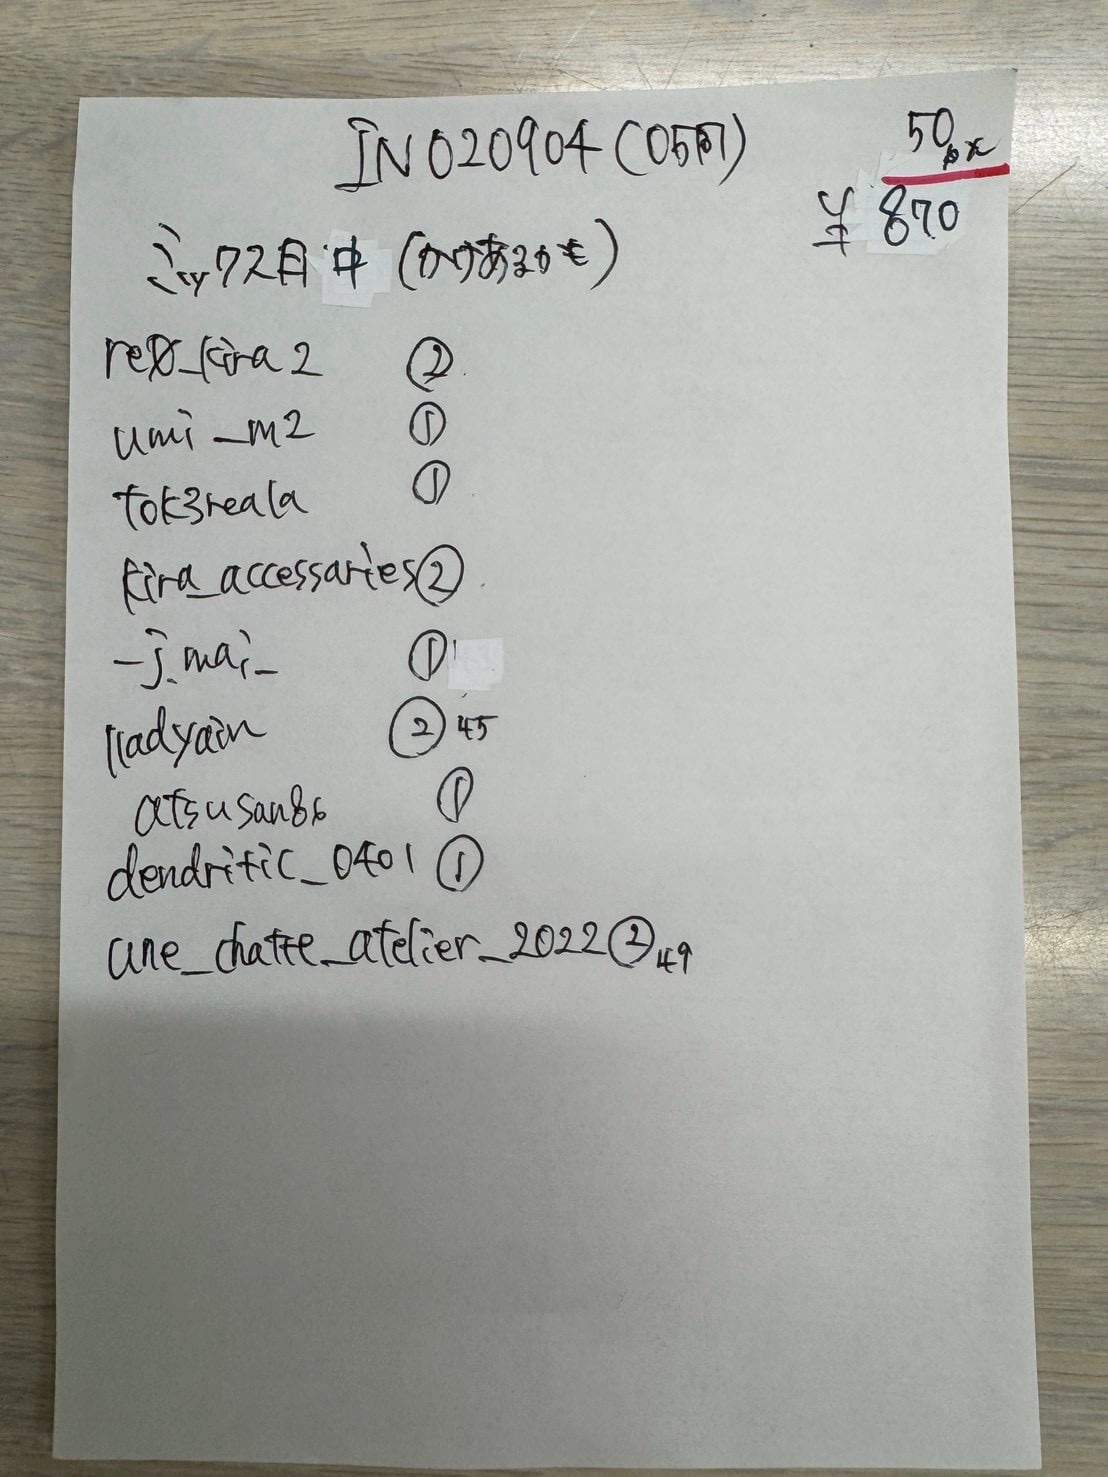 IN020904 (05 50px
¥870
ミックス目中 (かけあるかも)
_kira2 ②
umi_m2 ①
tok3reala ①
kira_accessaries ②
_j.mai_ ①
②45
atsusan86 ①
dendritic_0401 ①
une_chatte_atelier_2022 ②49